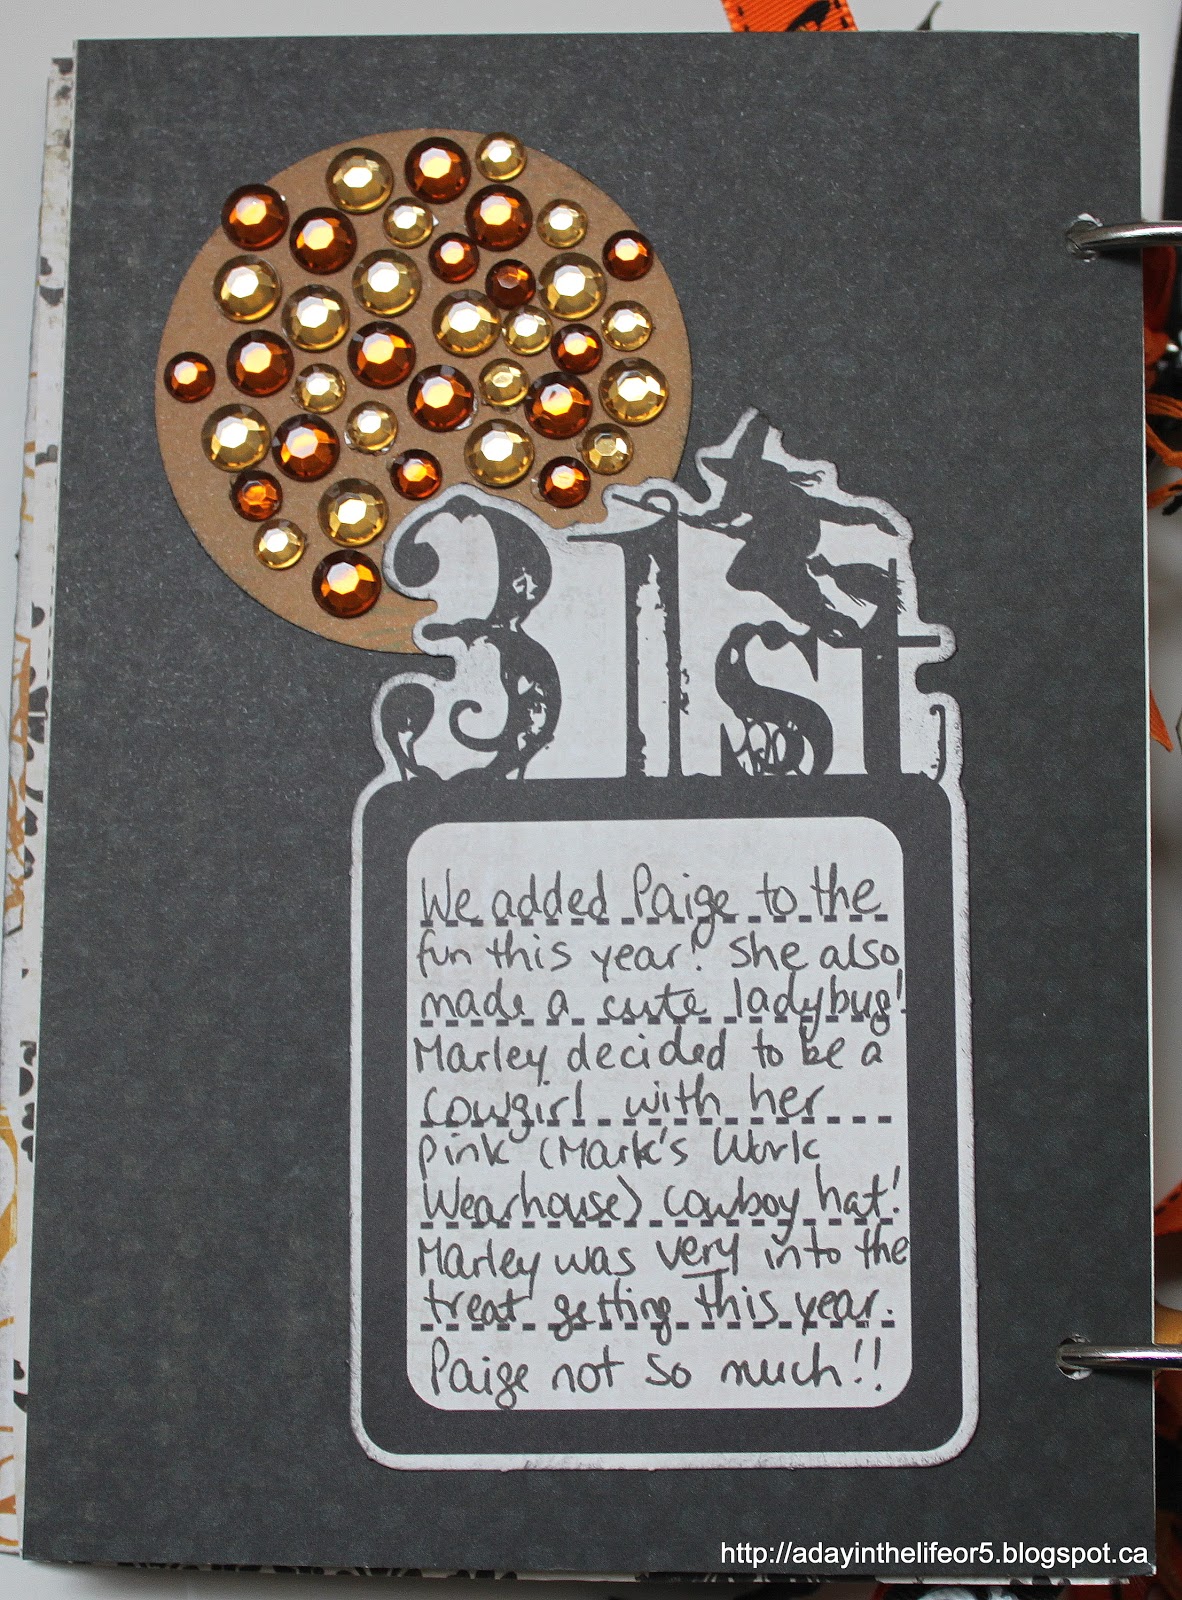 31st
We added Paige to the
fun this year! She also
made a cute ladybug!
Marley decided to be a
Cowgirl with her
pink (Mark's Work
Wearhouse) cowboy hat!
Marley was very into the
treat getting this year.
Paige not so much!!
http://adayinthelifeor5.blogspot.ca